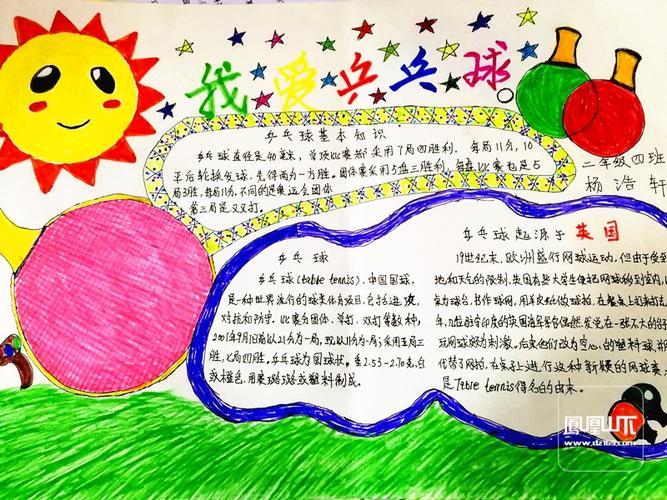 我爱乒乓球
乒乓球基本知识
乒乓球直径是40毫米,单项比赛都采用7局四胜利,每局11分,10
平后轮换发球,先得两分一方胜。团体赛采用5盘三胜利,每盘比赛也是5
局3胜,每局11分,不同的是奥运会团体
第三局是双打。
二年级四班
杨浩轩
乒乓球
乒乓球(table tennis),中国国球,
是一种世界流行的球类体育项目,包括进攻,
对抗和防守。比赛分团体、单打、双打等数种,
2001年9月1日前以21分为一局,现以11分为一局;采用五局三
胜,七局四胜。乒乓球为圆球状,重2.53-2.70克,白
或橙色,用赛璐璐或塑料制成。
乒乓球起源于英国
19世纪末,欧洲盛行网球运动,但由于受到
地和天气的限制,英国有些大学生便把网球移到室内,以
桌为球台,书作球网,用羊皮纸做球拍,在餐桌上打来打去。
年,几位驻守印度的英国海军军官偶然发觉在一张不大的
玩网球颇为刺激,后来他们改为空心的塑料球,
代替了网拍,在桌子上进行这种新颖的网球赛,
是Table tennis得名的由来。
凤凰山下
www.dz169.com